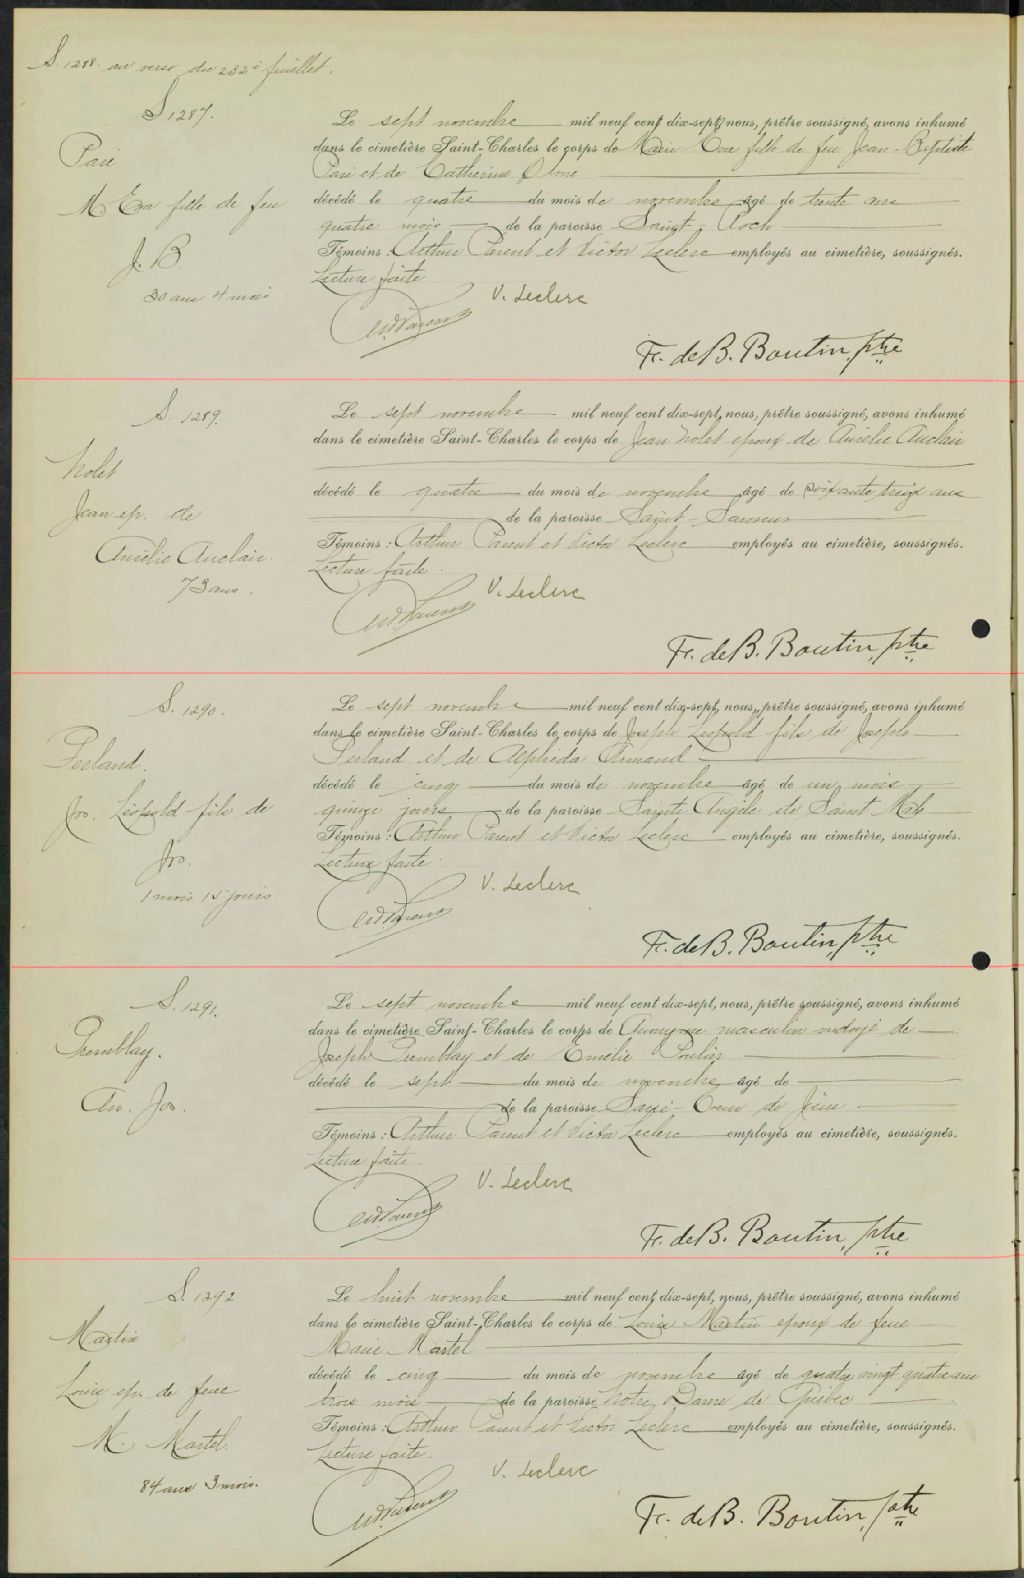 S. 1288 au verso du 232e feuillet.
S 1287.
Paré
M Eva fille de feu
J. B
30 ans 4 mois
Le sept novembre mil neuf cent dix-sept, nous, prêtre soussigné, avons inhumé
dans le cimetière Saint-Charles le corps de Marie Eva fille de feu Jean-Baptiste
Paré et de Catherine
décédé le quatre du mois de novembre âgé de trente ans
quatre mois de la paroisse Saint-Roch
Témoins : Arthur Parent et Victor Leclerc employés au cimetière, soussignés.
Lecture faite
V. Leclerc
Fr. de B. Boutin, ptre
S. 1289.
Nolet
Jean ep. de
Aurélie Auclair.
73 ans.
Le sept novembre mil neuf cent dix-sept, nous, prêtre soussigné, avons inhumé
dans le cimetière Saint-Charles le corps de Jean Nolet epoux de Aurélie Auclair
décédé le quatre du mois de novembre âgé de soixante treize ans
de la paroisse Saint-Sauveur
Témoins : Arthur Parent et Victor Leclerc employés au cimetière, soussignés.
Lecture faite.
V. Leclerc
Fr. de B. Boutin, ptre
S. 1290.
Perland.
Jos. Léopold fils de
Jos.
1 mois 15 jours
Le sept novembre mil neuf cent dix-sept, nous, prêtre soussigné, avons inhumé
dans le cimetière Saint-Charles le corps de Joseph Léopold fils de Joseph
Perland et de Alphida Armand
décédé le cinq du mois de novembre âgé de un mois
quinze jours de la paroisse Sainte Angèle de Saint Malo
Témoins : Arthur Parent et Victor Leclerc employés au cimetière, soussignés.
Lecture faite.
V. Leclerc
Fr. de B. Boutin, ptre
S. 1291.
Tremblay.
An. Jos.
Le sept novembre mil neuf cent dix-sept, nous, prêtre soussigné, avons inhumé
dans le cimetière Saint-Charles le corps de Anonyme masculin ondoyé de
Joseph Tremblay et de Emélie Poulin
décédé le sept du mois de novembre âgé de
de la paroisse Sacré-Coeur de Jésus
Témoins : Arthur Parent et Victor Leclerc employés au cimetière, soussignés.
Lecture faite.
V. Leclerc
Fr. de B. Boutin, ptre
S. 1292
Martin
Louis ep. de feue
M. Martel.
84 ans 3 mois.
Le huit novembre mil neuf cent dix-sept, nous, prêtre soussigné, avons inhumé
dans le cimetière Saint-Charles le corps de Louis Martin epoux de feue
Marie Martel
décédé le cinq du mois de novembre âgé de quatre vingt quatre ans
trois mois de la paroisse Notre Dame de Québec
Témoins : Arthur Parent et Victor Leclerc employés au cimetière, soussignés.
Lecture faite.
V. Leclerc
Fr. de B. Boutin, ptre